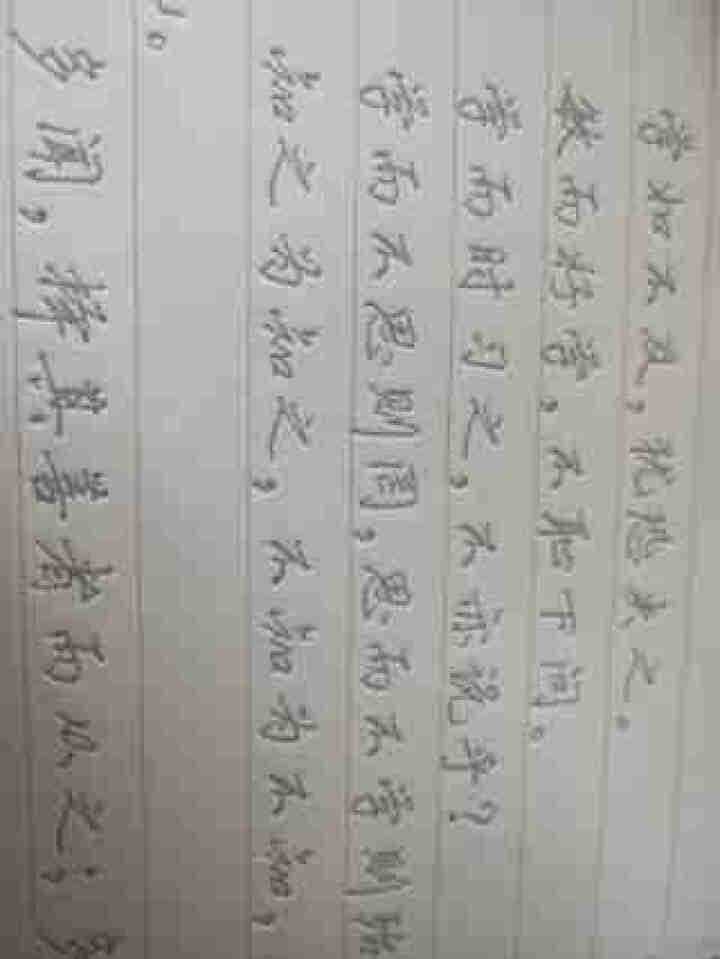 学如不及，犹恐失之。
敏而好学，不耻下问。
学而时习之，不亦说乎？
学而不思则罔，思而不学则殆
知之为知之，不知为不知，
多闻，择其善者而从之；多